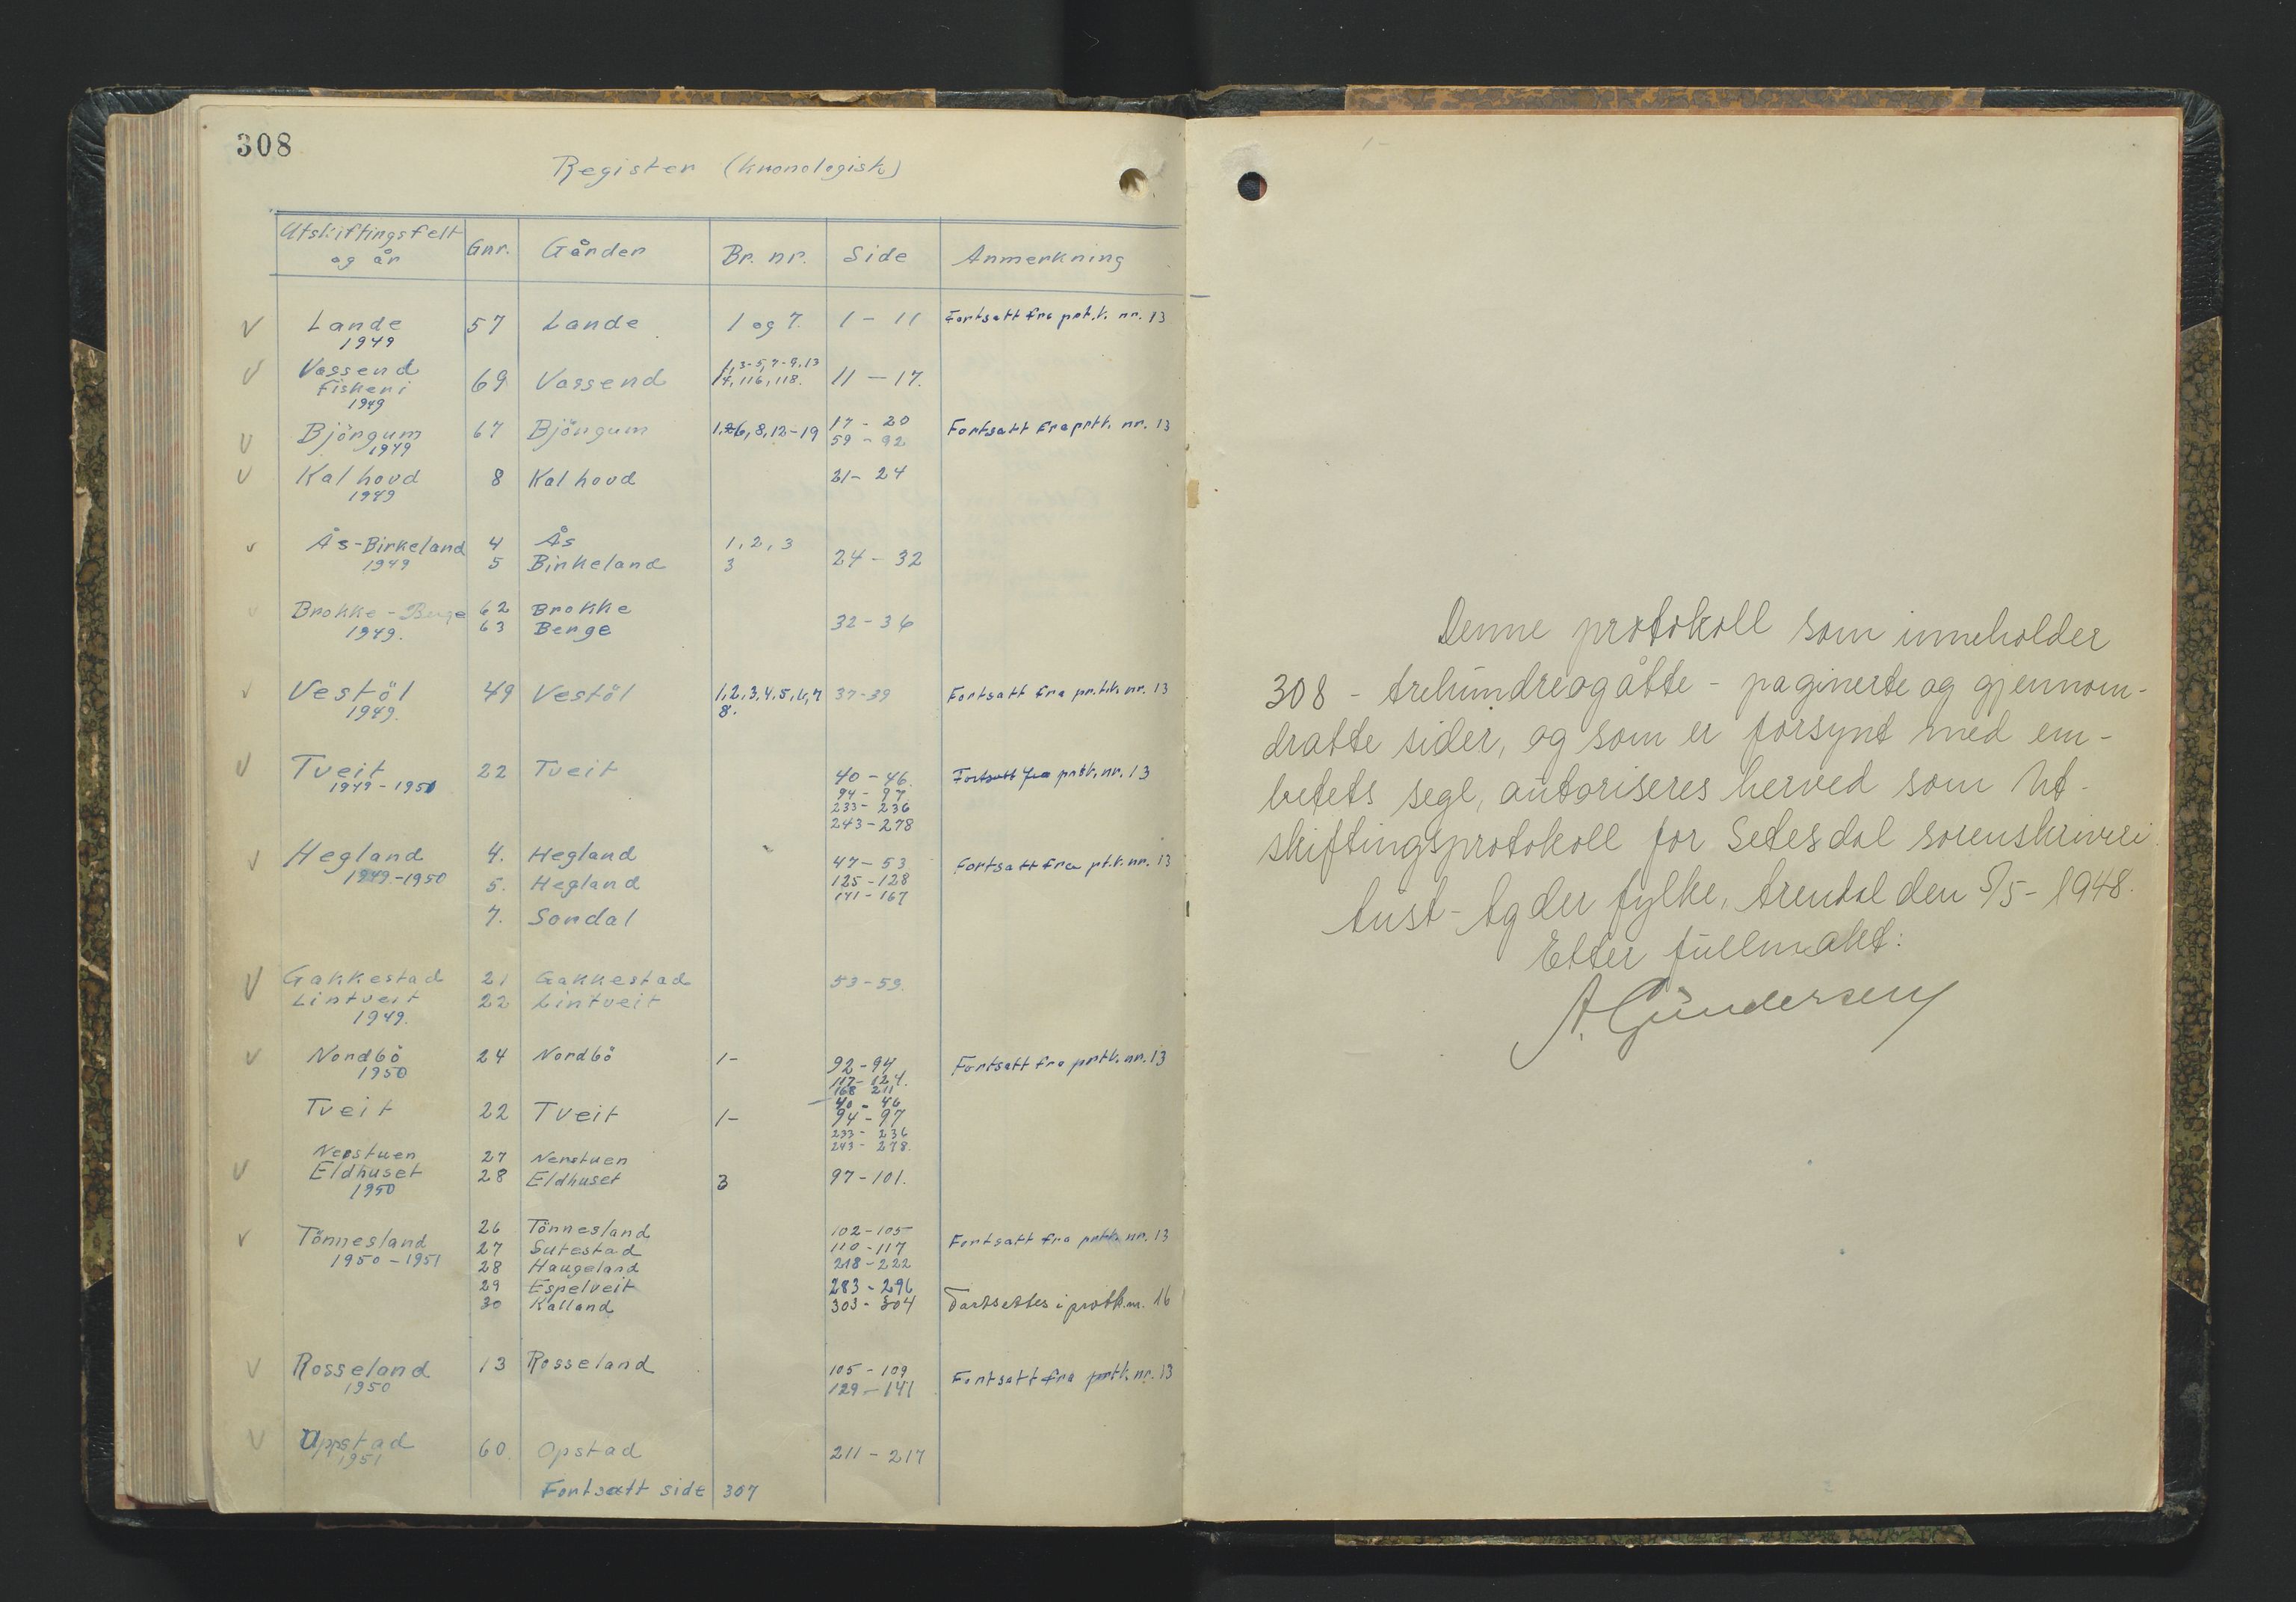 308
Register (kronologisk)
Utskiftingsfelt og år Gnr. Gårder Br. nr. Side Anmerkning
Lande 57 Lande 1 og 7. 1 - 11 Fortsatt fra prt.k. nr. 13
1949
Vassend 1,3-5,7-9,13
Fiskeri 69 Vassend 17,116,118. 11 - 17.
1949
Björgum 67 Björgum 1,6,8,12-19 17 - 20 Fortsatt fra prtk. nr. 13
1949 59 - 92
Kalhovd 8 Kalhovd 21 - 24
1949
Ås-Birkeland 4 Ås 1, 2, 3
1949 5 Birkeland 3 24 - 32
Brokke - Berge 62 Brokke
1949. 63 Berge 32 - 36
Vestöl 49 Vestöl 1,2,3,4,5,6,7 37-39 Fortsatt fra pr.t.k. nr. 13
1949. 8.
Tveit 22 Tveit 40 - 46. Fortsatt fra prtk. nr. 13
1949 - 1950 94 - 97
233 - 236
243 - 278
Hegland 4. Hegland 47 - 53 Fortsatt fra pt.k. nr. 13
1949.-1950 5. Hegland 125 - 128
141 - 167
7. Sondal
Gakkestad 21 Gakkestad 53 - 59.
Lintveit 22 Lintveit
1949.
Nordbö 24 Nordbö 1- 92 - 94 Fortsatt fra prtk. nr. 13
1950 117 - 124.
168 211
40 - 46
Tveit 22 Tveit 1- 94 - 97
233 - 236
243 - 278.
Nerstuen 27 Nerstuen
Eldhuset 28 Eldhuset 3 97 - 101.
1950
26 Tönnesland 102 - 105
Tönnesland 27 Sutestad 110 - 117 Fortsatt fra prtk. nr. 13
1950 - 1951 28 Haugeland 218 - 222
29 Espelveit 283 - 296
30 Kalland 303 - 304 Fortsettes i protk. nr. 16
Rosseland 13 Rosseland 105 - 109 Fortsatt fra prtk. nr. 13
1950 129 - 141
Uppstad 60. Opstad 211 - 217
1951
Fortsatt side 307
Denne protokoll som inneholder
308 - trehundreogåtte - paginerte og gjennom-
dratte sider, og som er forsynt med em-
betets segl, autoriseres herved som Ut-
skiftingsprotokoll for Setesdal sorenskriveri.
Aust-Agder fylke, Arendal den 5/5 - 1948.
Etter fullmakt:
A. Gundersen